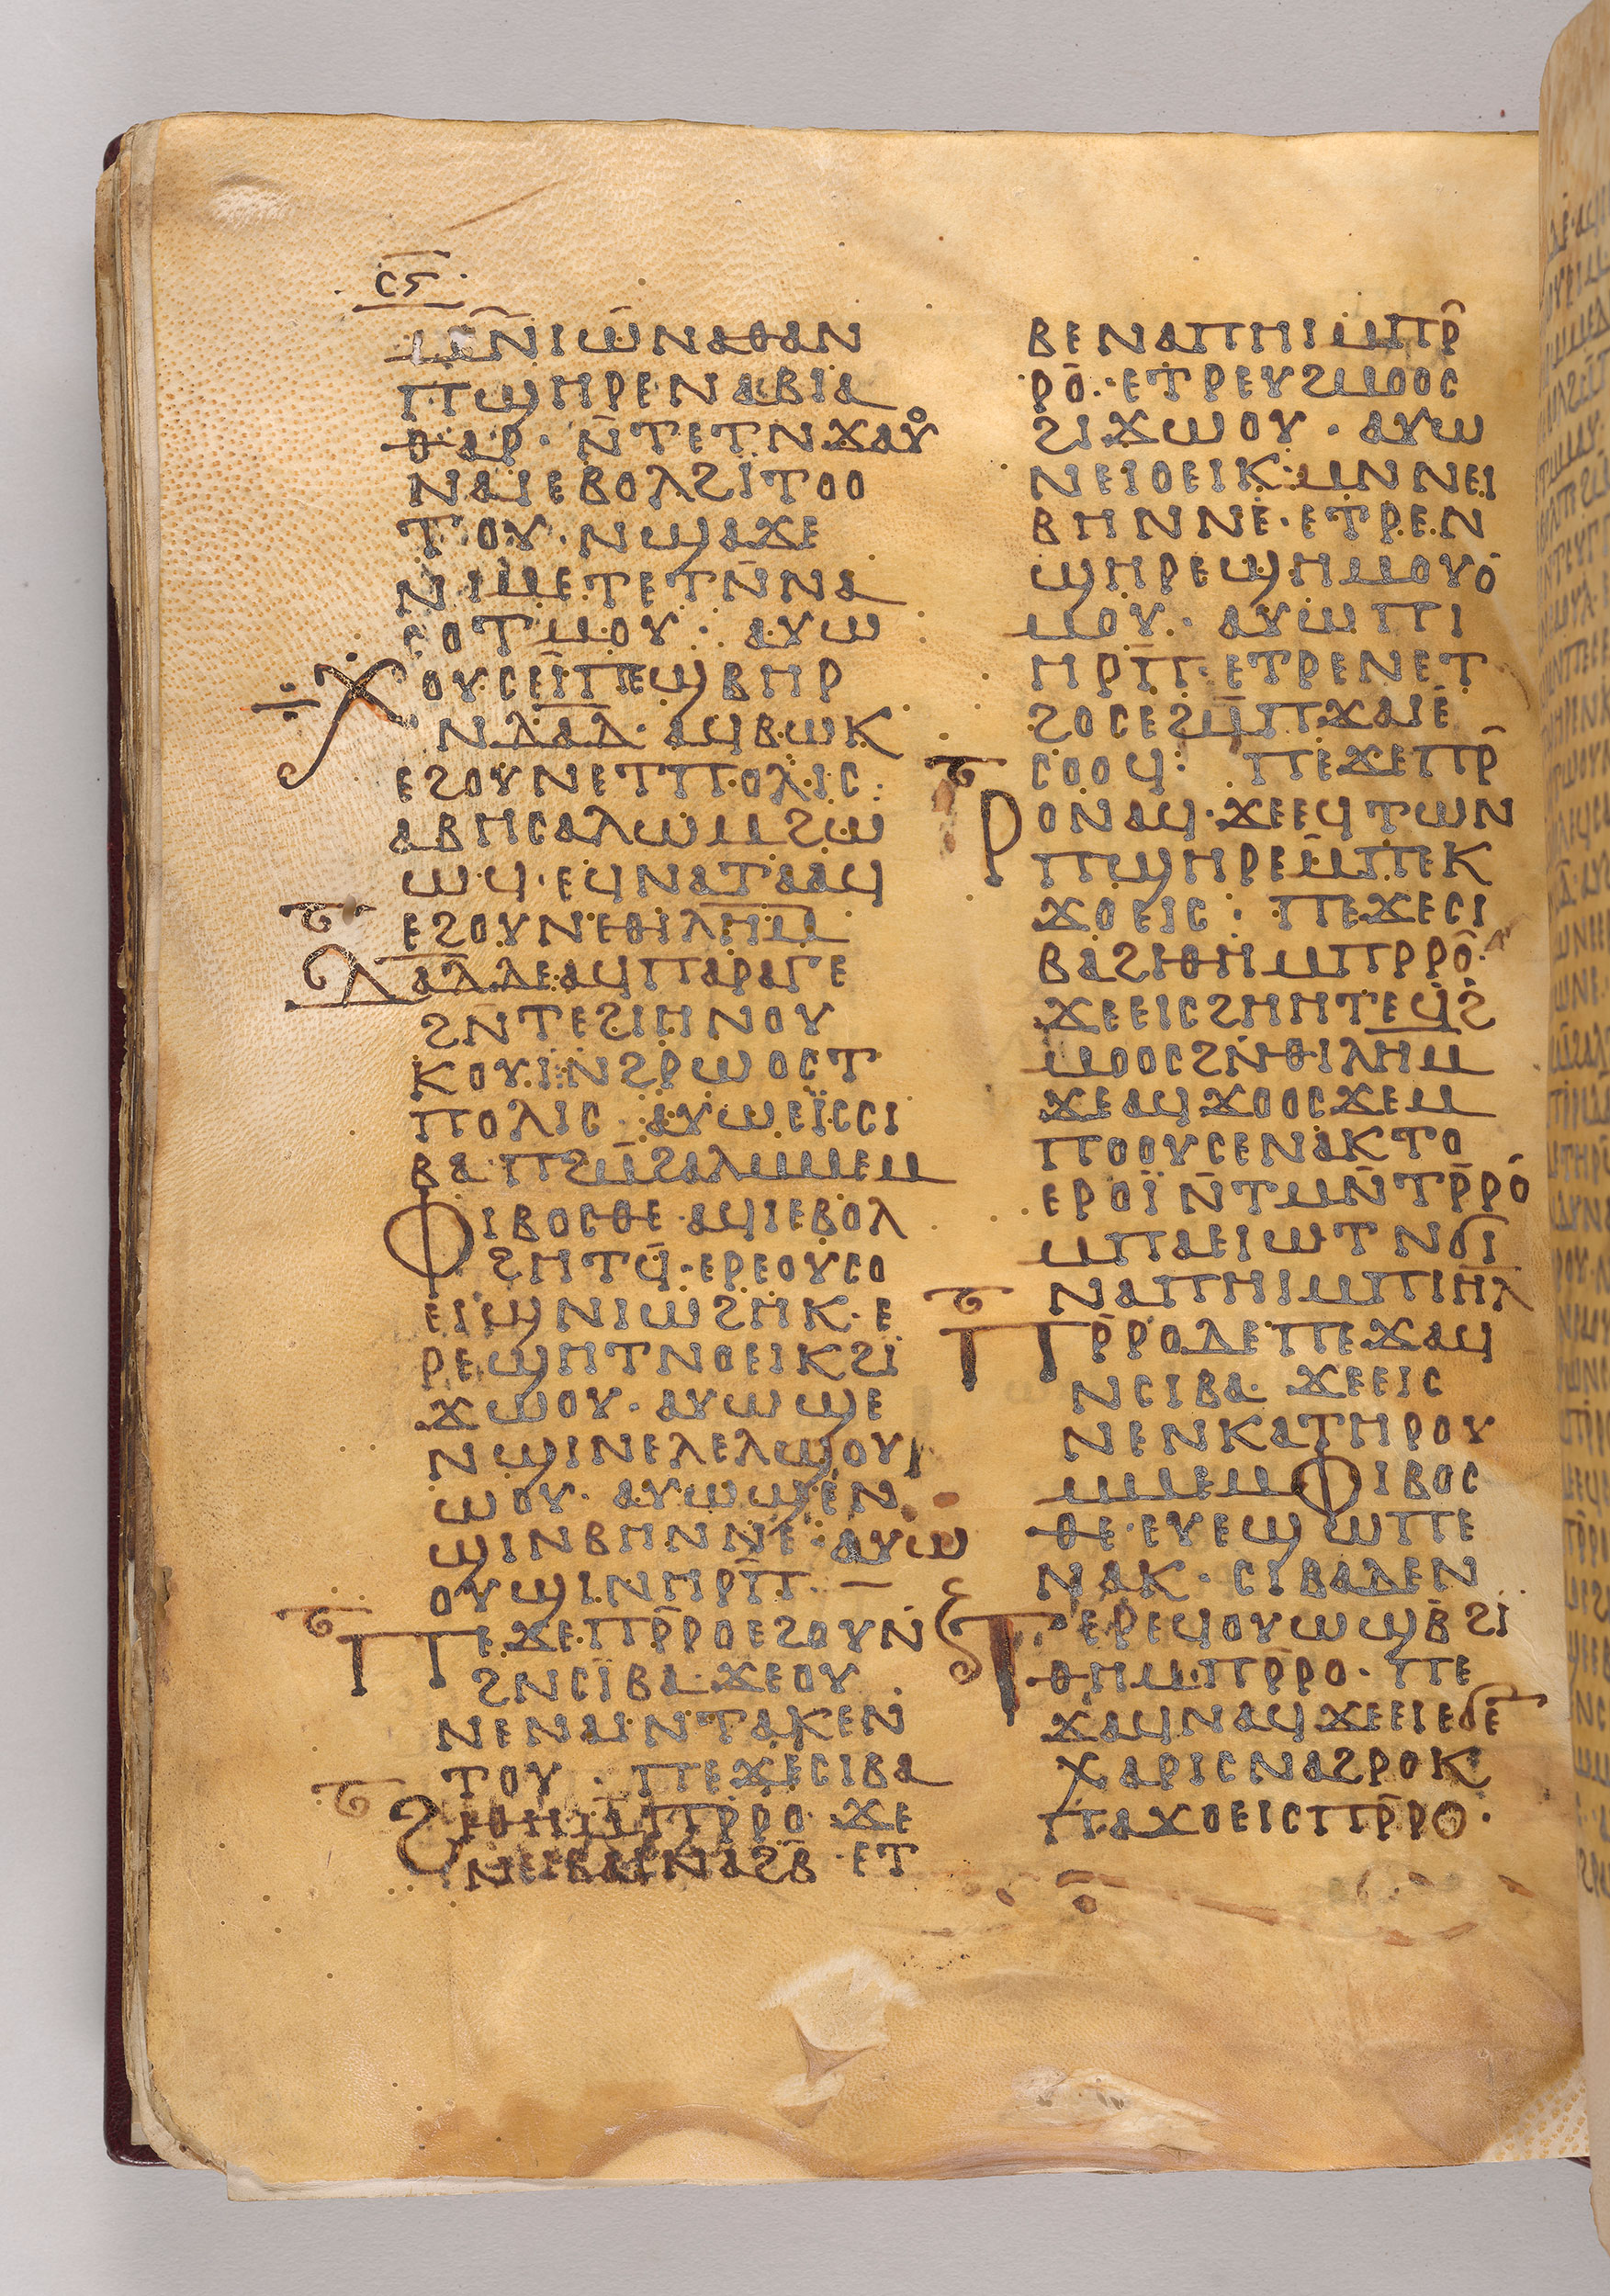 ⲥⲋ
ⲙⲛ̄ⲓⲱⲛⲁⲑⲁⲛ
ⲡϣⲏⲣⲉⲛⲁⲃⲓⲁ
ⲑⲁⲣ· ⲛ̄ⲧⲉⲧⲛϫⲁⲩ
ⲛⲁⲓⲉⲃⲟⲗϩⲓ̈ⲧⲟⲟ
ⲧⲟⲩ· ⲛϣⲁϫⲉ
ⲛⲓⲙⲉⲧⲉⲧⲛ̄ⲛⲁ
ⲥⲟⲧⲙⲟⲩ· ⲁⲩⲱ
ⲭⲟⲩⲥⲉⲓ̈ⲡⲉϣⲃⲏⲣ
ⲛⲇⲁⲇ· ⲁϥⲃⲱⲕ
ⲉϩⲟⲩⲛⲉⲧⲡⲟⲗⲓⲥ·
ⲁⲃⲏⲥⲁⲗⲱⲙϩⲱ
ⲱϥ·ⲉϥⲛⲁⲧⲁⲁϥ
ⲉϩⲟⲩⲛⲉⲑⲓⲗⲏⲙ
ⲇⲁⲇⲇⲉⲁϥⲡⲁⲣⲁⲅⲉ
ϩⲛⲧⲉϩⲓⲏⲛⲟⲩ
ⲕⲟⲩⲓ̈ⲛϩⲣⲱⲟⲥⲧ
ⲡⲟⲗⲓⲥ· ⲁⲩⲱⲉⲓ̈ⲥⲥⲓ
ⲃⲁ·ⲡϩⲙ̄ϩⲁⲗⲙⲙⲉⲙ
ⲫⲓⲃⲟⲥⲑⲉ·ⲁϥⲓⲉⲃⲟⲗ
ϩⲏⲧϥ̄·ⲉⲣⲉⲟⲩⲥⲟ
ⲉⲓϣⲛⲓⲱϩⲏⲕ·ⲉ
ⲣⲉϣⲏⲧⲛⲟⲉⲓⲕϩⲓ̈
ϫⲱⲟⲩ·ⲁⲩⲱϣⲉ
ⲛϣⲓⲛⲉⲗⲉⲗϣⲟⲩ
ⲱⲟⲩ· ⲁⲩⲱϣⲉⲛ
ϣⲓⲛⲃⲏⲛⲛⲉ·ⲁⲩⲱ
ⲟⲩϣⲓⲛⲏⲣⲡ̄·
ⲡⲉϫⲉⲡⲣ̄ⲣⲟⲉϩⲟⲩⲛ
ϩⲛⲥⲓⲃⲁ·ϫⲉⲟⲩ
ⲛⲉⲛⲁⲓⲛⲧⲁⲕⲉⲛ
ⲧⲟⲩ· ⲡⲉϫⲉⲥⲓⲃⲁ
ϩⲓⲑⲏⲙⲡⲣ̄ⲣⲟ·ϫⲉ
ⲛⲉⲓⲃⲁⲓⲛⲁϩⲃ̄·ⲉⲧ
ⲃⲉⲛⲁⲡⲏⲓⲙⲡⲣ̄
ⲣⲟ··ⲉⲧⲣⲉⲩϩⲙⲟⲟⲥ
ϩⲓϫⲱⲟⲩ·ⲁⲩⲱ
ⲛⲉⲓⲟⲉⲓⲕ·ⲙⲛⲛⲉⲓ
ⲃⲏⲛⲛⲉ·ⲉⲧⲣⲉⲛ
ϣⲏⲣⲉϣⲏⲙⲟⲩⲟ
ⲙⲟⲩ·ⲁⲩⲱⲡⲓ
ⲏⲣⲡ̄·ⲉⲧⲣⲉⲛⲉⲧ
ϩⲟⲥⲉϩⲙ̄ⲡϫⲁⲓⲉ
ⲥⲟⲟϥ· ⲡⲉϫⲉⲡⲣ̄
ⲣⲟⲛⲁϥ·ϫⲉⲉϥⲧⲱⲛ
ⲡϣⲏⲣⲉⲙ̄ⲡⲉⲕ
ϫⲟⲉⲓⲥ· ⲡⲉϫⲉⲥⲓ
ⲃⲁϩⲓⲑⲏⲙⲡⲣⲣⲟ·
ϫⲉⲉⲓⲥϩⲏⲏⲧⲉϥϩ
ⲙⲟⲟⲥϩⲛ̄ⲑⲓⲗⲏⲙ
ϫⲉⲁϥϫⲟⲟⲥϫⲉⲙ
ⲡⲟⲟⲩⲥⲉⲛⲁⲕⲧⲟ
ⲉⲣⲟⲓ̈ⲛ̄ⲧⲙⲛ̄ⲧⲣ̄ⲣⲟ
ⲙⲡⲁⲉⲓⲱⲧⲛϭⲓ
ⲛⲁⲡⲏⲓⲙⲡⲓⲏ̄ⲗ
ⲡⲣ̄ⲣⲟⲇⲉⲡⲉϫⲁϥ
ⲛⲥⲓⲃⲁ· ϫⲉⲉⲓⲥ
ⲛⲉⲛⲕⲁⲧⲏⲣⲟⲩ
ⲙⲙⲉⲙⲫⲓⲃⲟⲥ
ⲑⲉ·ⲉⲩⲉϣⲱⲡⲉ
ⲛⲁⲕ·ⲥⲓⲃⲁⲇⲉⲛ
ⲧⲉⲣⲉϥⲟⲩⲱϣⲃ̄ϩⲓ
ⲑⲏⲙⲡⲣⲣⲟ·ⲡⲉ
ϫⲁϥⲛⲁϥϫⲉⲉⲓⲉϭⲉ
ⲭⲁⲣⲓⲥⲛⲁϩⲣⲟⲕ
ⲡⲁϫⲟⲉⲓⲥⲡⲣ̄ⲣⲟ·